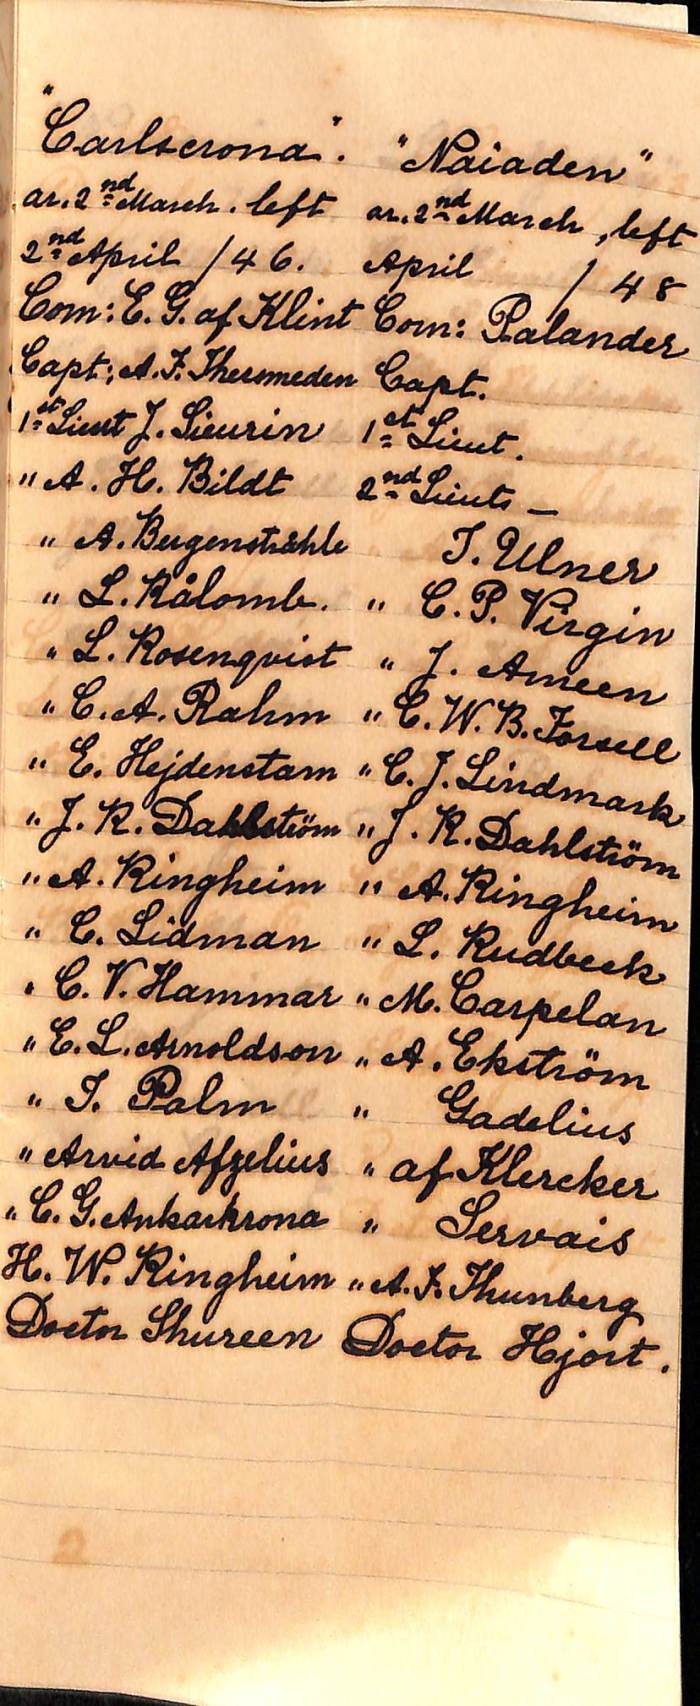 "Carlscrona".
ar. 2nd March. left
2nd April /46.
Com: E. G. af Klint
Capt: A. F. Thersmeden
1st Lieut J. Sieurin
" A. H. Bildt
" A. Bergenstråhle
" L. Rålomb.
" L. Rosenqvist
" C. A. Rahm
" E. Hejdenstam
" J. R. Dahlström
" A. Ringheim
" C. Lidman
" C. V. Hammar
" E. L. Arnoldson
" I. Palm
" Arvid Afzelius
" C. G. Ankarkrona
H. W. Ringheim
Doctor Thureen
"Naiaden"
ar. 2nd March, left
April /48
Com: Palander
Capt.
1st Lieut.
2nd Lieuts —
T. Ulner
" C. P. Virgin
" J. Ameen
" C. W. B. Forsell
" C. J. Lindmark
" J. R. Dahlström
" A. Ringheim
" L. Rudbeck
" M. Carpelan
" A. Ekström
" Gadelius
" af Klercker
" Servais
" A. F. Thunberg
Doctor Hjort.